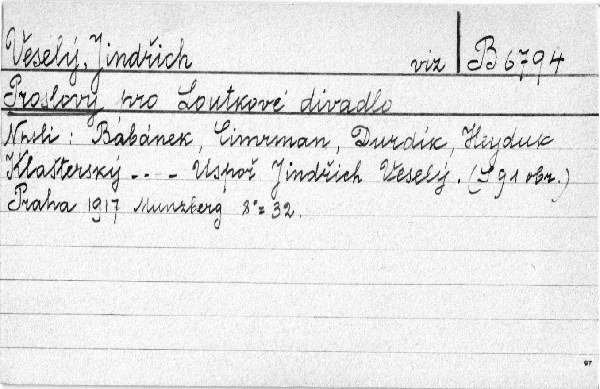 Veselý, Jindřich viz B 6794
Proslovy pro Loutkové divadlo
Npsli: Bábánek, Cimrman, Durdík, Heyduk
Klášterský - - - Uspoř Jindřich Veselý. (S 91 obr.)
Praha 1917 Munzberg 8°= 32.
97